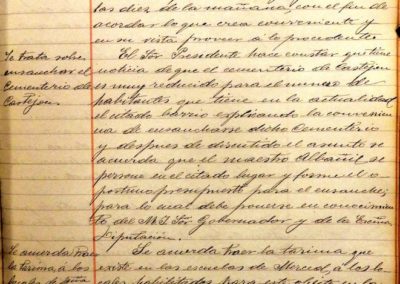 las diez de la mañana, con el fin de
acordar lo que crea conveniente y
en su vista proveer a lo procedente
Se trata sobre
ensanchar el
Cementerio de
Castejon.
El Sor Presidente hace constar que tiene
noticia de que el cementerio de Castejon
es muy reducido para el numero de
habitantes que tiene en la actualidad
el citado barrio explicando la convenien
cia de ensancharse dicho Cementerio
y despues de discutido el asunto se
acuerda que el maestro Albañil se
persone en el citado lugar y forme el o
portuno presupuesto para el ensanche;
para lo cual debe ponerse en conocimien
to del M. I. Sor Gobernador y de la Excma
Diputación.
Se acuerda traer
la tarima á los
Se acuerda traer la tarima que
existe en las escuelas de Merced, á los lo
cales habilitados para este objeto en la